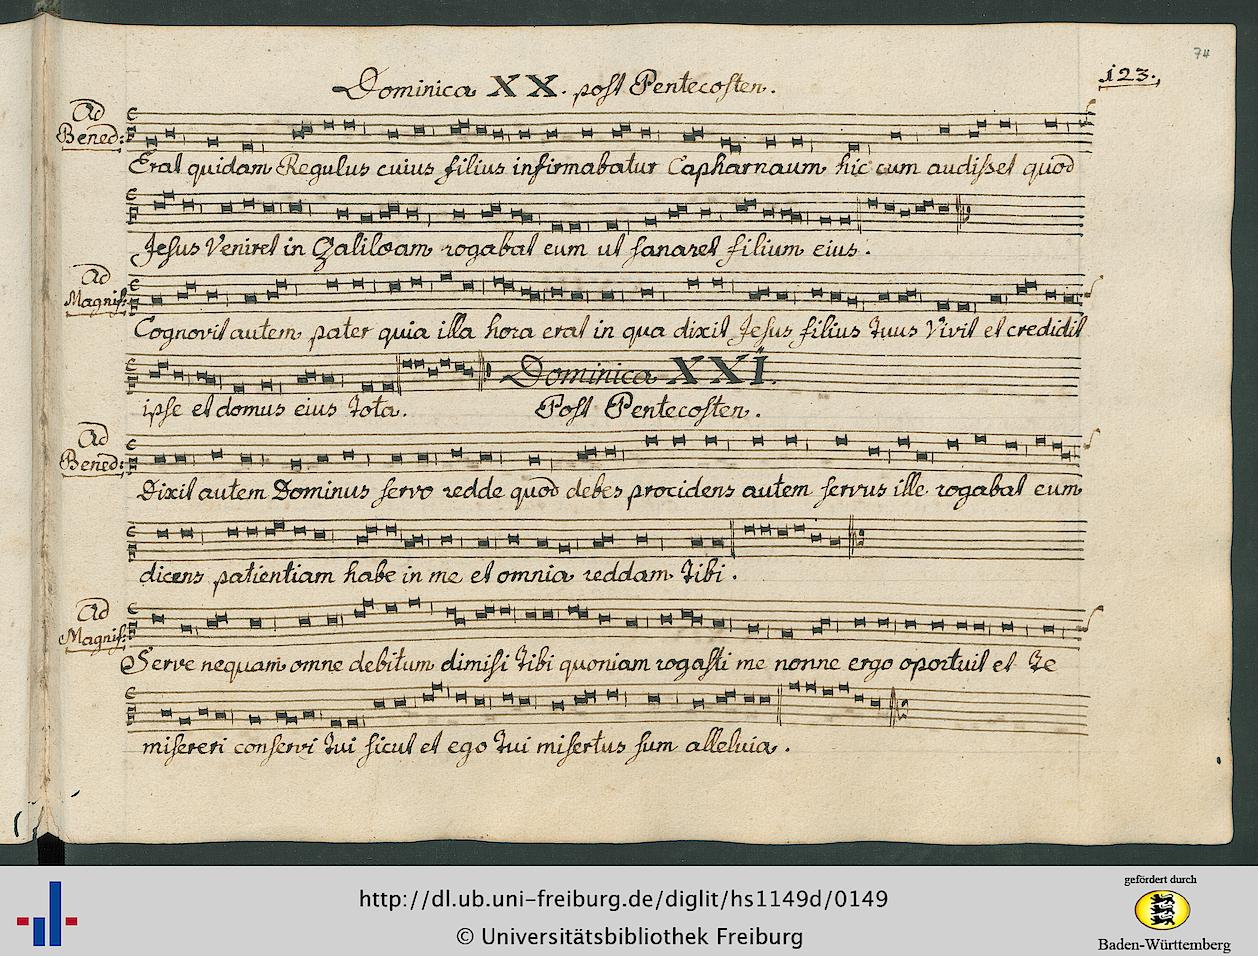 74
123.
Dominica XX. post Pentecosten.
Ad
Bened:
Erat quidam Regulus cuius filius infirmabatur Capharnaum hic cum audisset quod
Jesus Veniret in Galilæam rogabat eum ut sanaret filium eius.
Ad
Magnif:
Cognovit autem pater quia illa hora erat in qua dixit Jesus filius tuus Vivit et credidit
ipse et domus eius tota.
Dominica XXI.
Post Pentecosten.
Ad
Bened:
Dixit autem Dominus servo redde quod debes procidens autem servus ille rogabat eum
dicens patientiam habe in me et omnia reddam tibi.
Ad
Magnif:
Serve nequam omne debitum dimisi tibi quoniam rogasti me nonne ergo oportuit et te
misereri conservi tui sicut et ego tui misertus sum alleluia.
http://dl.ub.uni-freiburg.de/diglit/hs1149d/0149
© Universitätsbibliothek Freiburg
gefördert durch
Baden-Württemberg